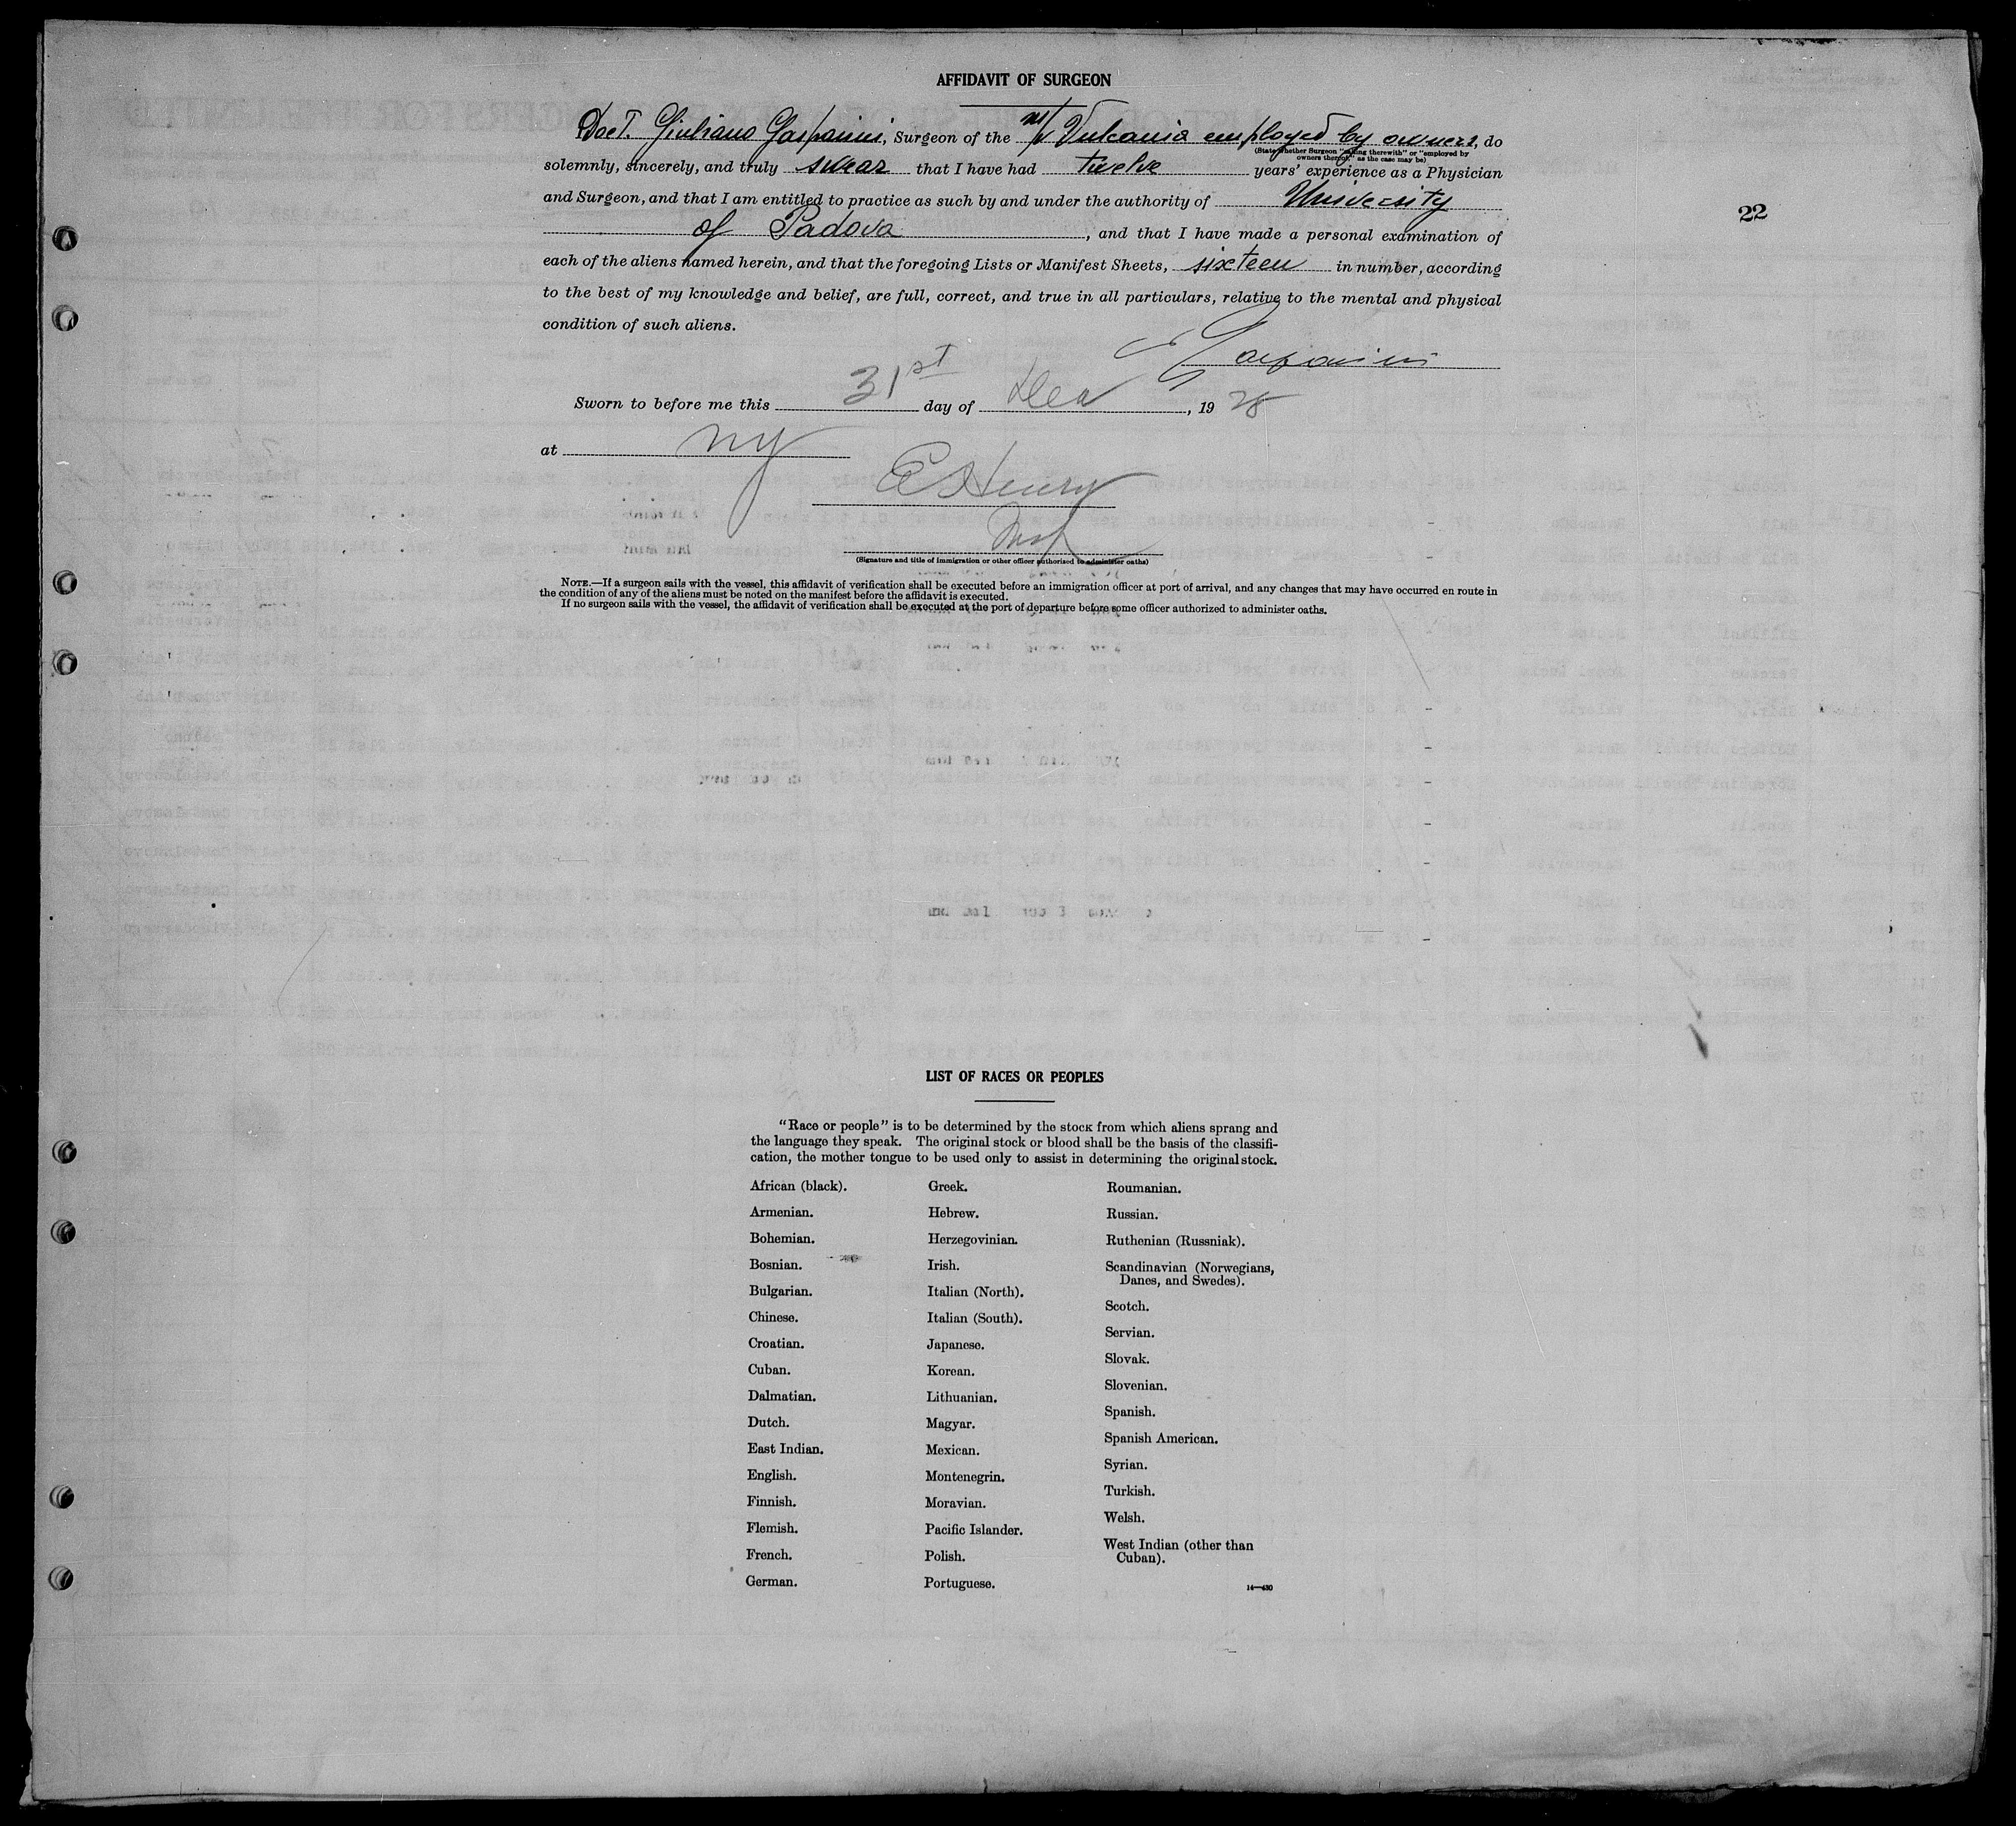 AFFIDAVIT OF SURGEON
22
Doct. Giuliano Gasparini, Surgeon of the M/V Vulcania employed by owners, do
(State whether Surgeon "sailing therewith" or "employed by
owners thereof," as the case may be)
solemnly, sincerely, and truly swear that I have had twelve years' experience as a Physician
and Surgeon, and that I am entitled to practice as such by and under the authority of University
of Padova, and that I have made a personal examination of
each of the aliens named herein, and that the foregoing Lists or Manifest Sheets, sixteen in number, according
to the best of my knowledge and belief, are full, correct, and true in all particulars, relative to the mental and physical
condition of such aliens.
Gasparini
Sworn to before me this 31st day of Dec, 1928
at NY
Henry
Insp
(Signature and title of immigration or other officer authorized to administer oaths)
NOTE.—If a surgeon sails with the vessel, this affidavit of verification shall be executed before an immigration officer at port of arrival, and any changes that may have occurred en route in
the condition of any of the aliens must be noted on the manifest before the affidavit is executed.
If no surgeon sails with the vessel, the affidavit of verification shall be executed at the port of departure before some officer authorized to administer oaths.
LIST OF RACES OR PEOPLES
"Race or people" is to be determined by the stock from which aliens sprang and
the language they speak. The original stock or blood shall be the basis of the classifi-
cation, the mother tongue to be used only to assist in determining the original stock.
African (black).
Armenian.
Bohemian.
Bosnian.
Bulgarian.
Chinese.
Croatian.
Cuban.
Dalmatian.
Dutch.
East Indian.
English.
Finnish.
Flemish.
French.
German.
Greek.
Hebrew.
Herzegovinian.
Irish.
Italian (North).
Italian (South).
Japanese.
Korean.
Lithuanian.
Magyar.
Mexican.
Montenegrin.
Moravian.
Pacific Islander.
Polish.
Portuguese.
Roumanian.
Russian.
Ruthenian (Russniak).
Scandinavian (Norwegians,
Danes, and Swedes).
Scotch.
Servian.
Slovak.
Slovenian.
Spanish.
Spanish American.
Syrian.
Turkish.
Welsh.
West Indian (other than
Cuban).
14—430